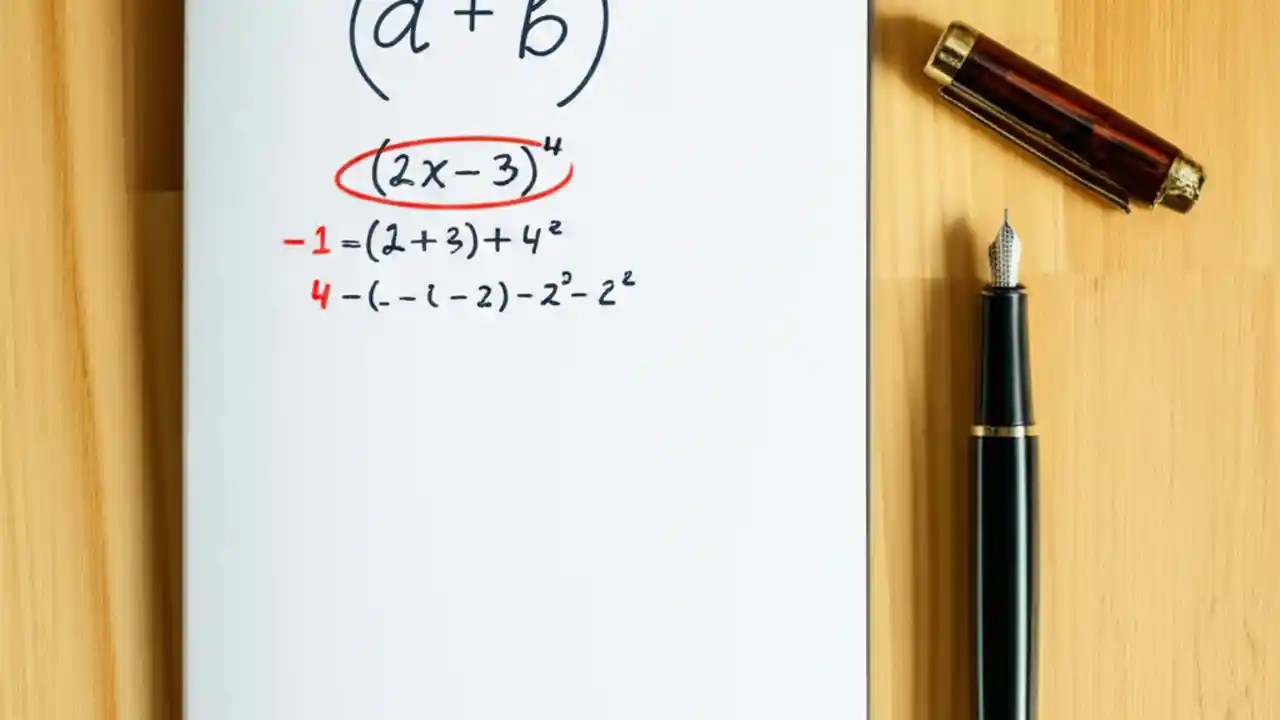 (a + b)
(2x - 3)⁴
-1 = (2 + 3) + 4²
4 - (- - ( - 2) - 2³ - 2²